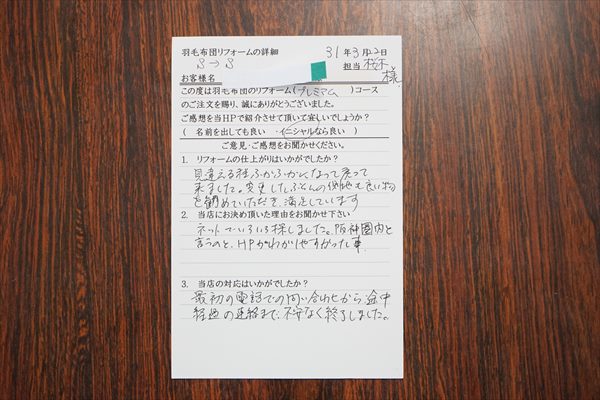 羽毛布団リフォームの詳細 31年3月22日
S→S 担当 桜木
お客様名 様
この度は羽毛布団のリフォーム(プレミアム)コース
のご注文を賜り、誠にありがとうございました。
ご感想を当HPで紹介させて頂いて宜しいでしょうか?
( 名前を出しても良い ・イニシャルなら良い )
ご意見・ご感想をお聞かせください。
1. リフォームの仕上がりはいかがでしたか?
見違える程ふかふかになって戻って
来ました。変更したふとんの側地も良い物
を勧めていただき、満足しています
2. 当店にお決め頂いた理由をお聞かせ下さい
ネットでいろいろ探しました。阪神圏内と
言うのと、HPがわかりやすかった事。
3. 当店の対応はいかがでしたか?
最初の電話での問い合わせから、途中
経過の連絡まで、不安なく終了しました。